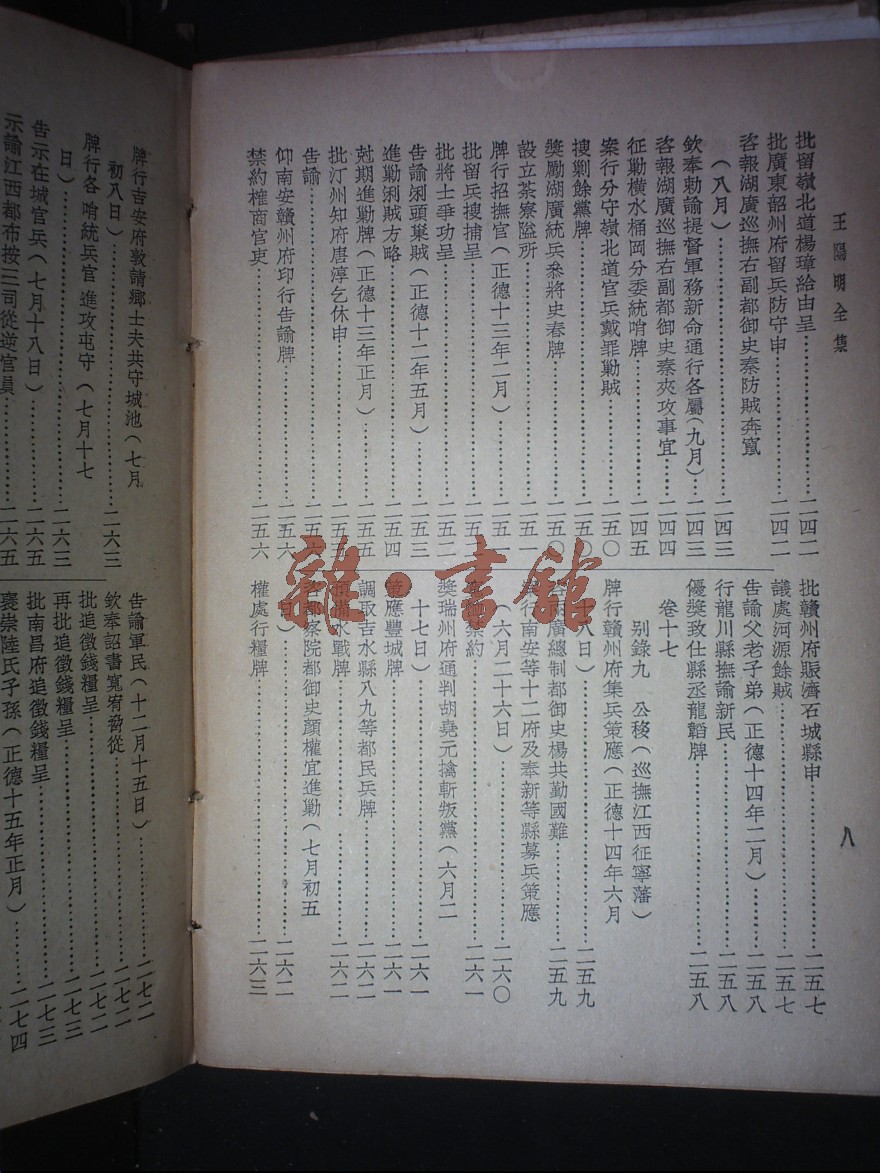 王陽明全集
八
批留嶺北道楊璋給由呈……二四二
批廣東韶州府留兵防守申……二四二
咨報湖廣巡撫右副都御史秦防賊奔竄
（八月）……二四三
欽奉勅諭提督軍務新命通行各屬（九月）……二四三
咨報湖廣巡撫右副都御史秦夾攻事宜……二四四
征勦橫水桶岡分委統哨牌……二四五
案行分守嶺北道官兵戴罪勦賊……二五〇
搜剿餘黨牌……二五〇
獎勵湖廣統兵叅將史春牌……二五〇
設立茶寮隘所……二五一
牌行招撫官（正德十三年二月）……二五一
批留兵搜捕呈……二五二
批將士爭功呈……二五二
告諭浰頭巢賊（正德十二年五月）……二五三
進勦浰賊方略……二五四
剋期進勦牌（正德十三年正月）……二五五
批汀州知府唐淳乞休申……二五五
告諭……二五六
仰南安贛州府印行告諭牌……二五六
禁約榷商官吏……二五六
批贛州府賑濟石城縣申……二五七
議處河源餘賊……二五七
告諭父老子弟（正德十四年二月）……二五八
行龍川縣撫諭新民……二五八
優獎致仕縣丞龍韜牌……二五八
卷十七
别錄九　公移（巡撫江西征寧藩）
牌行贛州府集兵策應（正德十四年六月
十八日）……二五九
咨兩廣總制都御史楊共勤國難……二五九
行南安等十二府及奉新等縣募兵策應
（六月二十六日）……二六〇
禁約……二六一
獎瑞州府通判胡堯元擒斬叛黨（六月二
十七日）……二六一
策應豐城牌……二六一
調取吉水縣八九等都民兵牌……二六二
預備水戰牌……二六二
咨都察院都御史顏權宜進勦（七月初五
日）……二六二
權處行糧牌……二六三
牌行吉安府敦請鄉士夫共守城池（七月
初八日）……二六三
牌行各哨統兵官進攻屯守（七月十七
日）……二六三
告示在城官兵（七月十八日）……二六五
示諭江西都布按三司從逆官員……二六五
告諭軍民（十二月十五日）……二七二
欽奉詔書寬宥脅從……二七二
批追徵錢糧呈……二七二
再批追徵錢糧呈……二七三
批南昌府追徵錢糧呈……二七三
褒崇陸氏子孫（正德十五年正月）……二七四
雜·書館